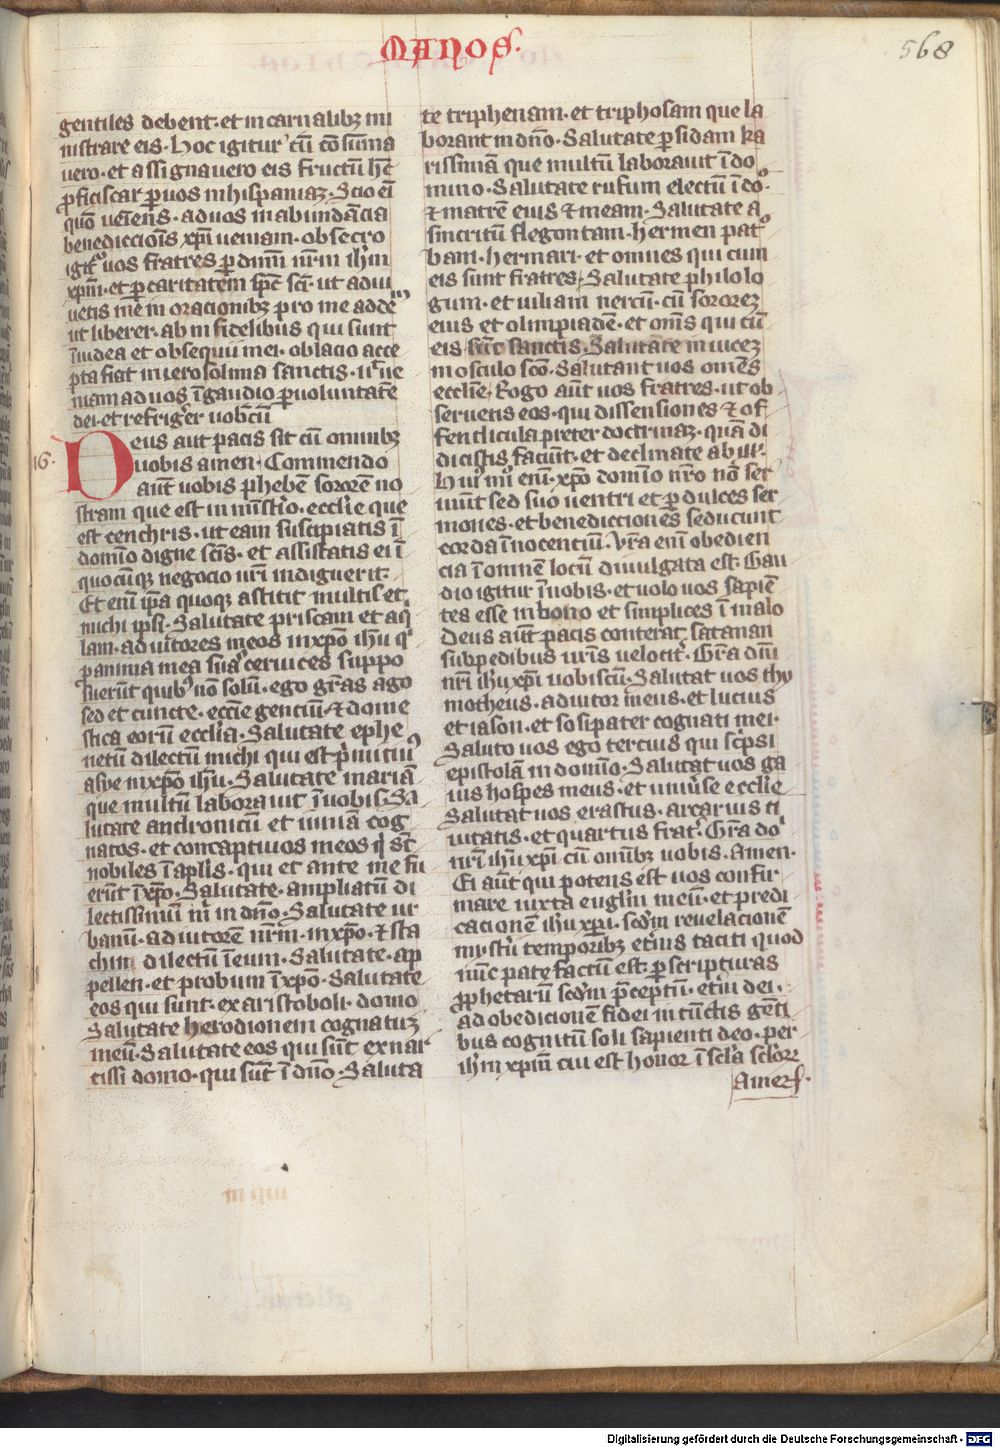 MANOS.
568
gentiles debent· et in carnalibꝫ mi
nistrare eis· Hoc igitur cū cōsūma
uero· et assignauero eis fructū hūc
ꝓficiscar ꝑ uos in hispaniaꝫ· Scio eī
quō ueīens· ad uos in abundācia
benediccioīs xp̄i ueniam· obsecro
igiť uos fratres ꝑ dnm̄ nr̄m ih̄m
xp̄m· et ꝑ caritatem sp̄c sc̄i· ut adiu
uetis mē in oracionibꝫ pro me ad deū
ut liberer· ab infidelibus qui sunt
ī iudea et obsequii mei· oblacio acce
pta fiat in ierosolima sanctis· ut ue
niam ad uos ī gaudio ꝑ uoluntatē
dei· et refriger uobcū
16·
Deus aut pacis sit cū omnibꝫ
uobis amen· Commendo
aūt uobis phebēn sororēn no
stram que est in mīst̄io· eccl̄ie que
est cenchris· ut eam suscipiatis ī
domīo digne sc̄is· et assistatis ei ī
quocūqꝫ negocio ur̄i indiguerit·
Et enī ip̄a quoqꝫ astitit multis et
michi ipsi· Salutate priscam et aq̇
lam· adiutores meos in xp̄o ih̄u q̇
ꝓ anima mea sua ceruices suppo
suerūt quibꝰ nō solū· ego gr̄as ago
sed et cuncte· eccīe gentiū· ⁊ dome
stica eorū eccl̄ia· Salutate ephe
netū dilectū michi qui est p̄mitiuꝰ
asye in xp̄o ih̄u· Salutate mariā
que multū laborauit ī uobis· Sa
lutate andronicū et iuniā cog
natos· et concaptiuos meos q̇ st̄
nobiles ī ap̄lis· qui et ante me fu
erūt ī xp̄o· Salutate· ampliatū di
lectissimū m̄ in dn̄o· Salutate ur
banū· adiutorē nr̄m· in xp̄o· ⁊ sta
chin dilectū meum· Salutate· ap
pellen· et probum ī xp̄o· Salutate
eos qui sunt· ex aristoboli· domo
Salutate herodionem cognatuꝫ
meū· Salutate eos qui sūt ex nar
tissi domo· qui sūt ī dn̄o· Saluta
te triphenam· et triphosam que la
borant in dn̄o· Salutate ꝑsidam ka
rissimā que multū laborauit ī do
mino· Salutate rufum electū ī dōo·
⁊ matrē eius ⁊ meam· Salutate a
sincritū flegontam· hermen patꝰ
bam· hermari· et omnes qui cum
eis sunt fratres· Salutate philolo
gum· et iuliam nereū· cū sororeꝫ
eius et olimpiadē· et omīs qui cū
eis sunt sanctis· Salutate inuiceꝫ
in osculo sc̄o· Salutant uos omēs
eccl̄ie· Rogo aūt uos fratres· ut ob
seruetis eos· qui dissensiones ⁊ of
fendicula preter doctrinaꝫ· quā di
dicistis faciūt· et declinate ab ill̄·
Huiꝰmōi enī· xp̄o domīo nr̄o nō ser
uiūt sed suo uentri et ꝑ dulces ser
mones· et benedicciones seducunt
corda īnocentiū· Ur̄a enī obedien
cia ī omnē locū diuulgata est· Gau
dio igitur ī uobis· et uolo uos sapiē
tes esse in bono et simplices ī malo
Deus aūt pacis conterat satanan
sub pedibus ur̄is uelocit̄· Gr̄a dnī
nr̄i ih̄u xp̄i uobiscū· Salutat uos thy
motheus· adiutor meus· et lucius
et iason· et sosipater cognati mei·
Saluto uos ego tercius qui sc̄psi
epistolā in domīo· Salutat uos ga
ius hospes meus· et uniūse eccl̄ie
Salutat uos erastus· arcarius ci
uitatis· et quartus frat̄· Gr̄a dōi
nr̄i ih̄u xp̄i cū omībꝫ uobis· Amen·
Ei aūt qui potens est uos confir
mare iuxta eugl̄m meū· et predi
cacionē ih̄u xp̄i· scd̄m reuelacionē
myst̄ii temporibꝫ et̄nis taciti quod
nūc patefactū est· ꝑ scripturas
ꝓphetarū scd̄m p̄ceptū· et̄ni dei·
ad obedicionē fidei in cūctis gēti
bus cognitū soli sapienti deo· per
ih̄m xp̄m cui est honor ī scl̄a scl̄oꝝ
Amen·
Digitalisierung gefördert durch die Deutsche Forschungsgemeinschaft - DFG